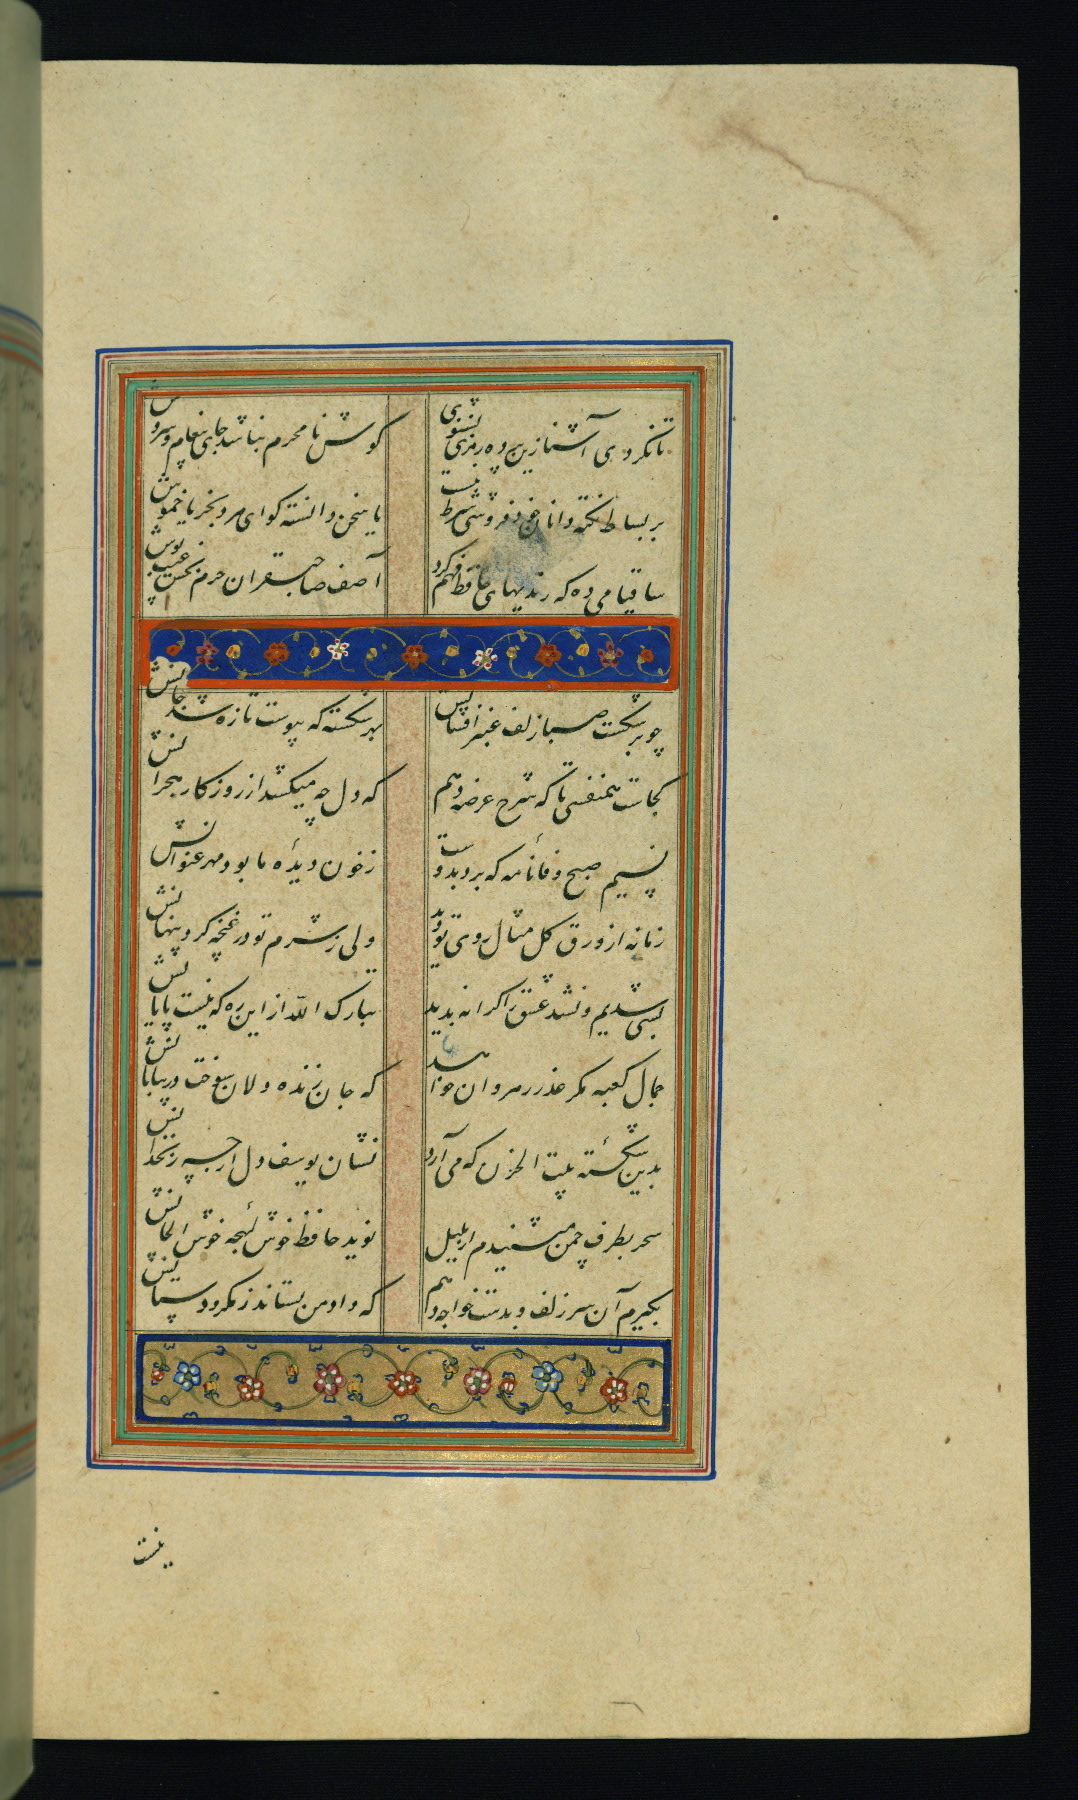 تا نکردی آشنا زین پرده رمزی نشنوی گوش نامحرم نباشد جای پیغام سروش
بر بساط نکته دانان خودفروشی شرط نیست یا سخن دانسته گو ای مرد بخرد یا خموش
ساقیا می ده که رندیهای حافظ فهم کرد آصف صاحبقران جرم بخش عیب پوش
چو برشکست صبا زلف عنبرافشانش بهر شکسته که پیوست تازه شد جانش
کجاست همنفسی تا که شرح عرضه دهم که دل چه میکشد از روزگار هجرانش
نسیم صبح وفا نامه که برد بدوست ز خون دیدهٔ ما بود مهر عنوانش
زمانه از ورق گل مثال روی تو دید ولی ز شرم تو در غنچه کرد پنهانش
بسی شدیم و نشد عشق را کرانه پدید تبارک الله از این ره که نیست پایانش
جمال کعبه مگر عذر رهروان خواهد که جان زنده دلان سوخت در بیابانش
بدین شکستهٔ بیت الحزن که می آرد نشان یوسف دل از چه زنخدانش
سحر بطرف چمن میشنیدم از بلبل نوید حافظ خوش لهجه خوش الحانش
بگیرم آن سر زلف و بدست خواجه دهم که داد من بستاند ز مکر و دستانش
نیست